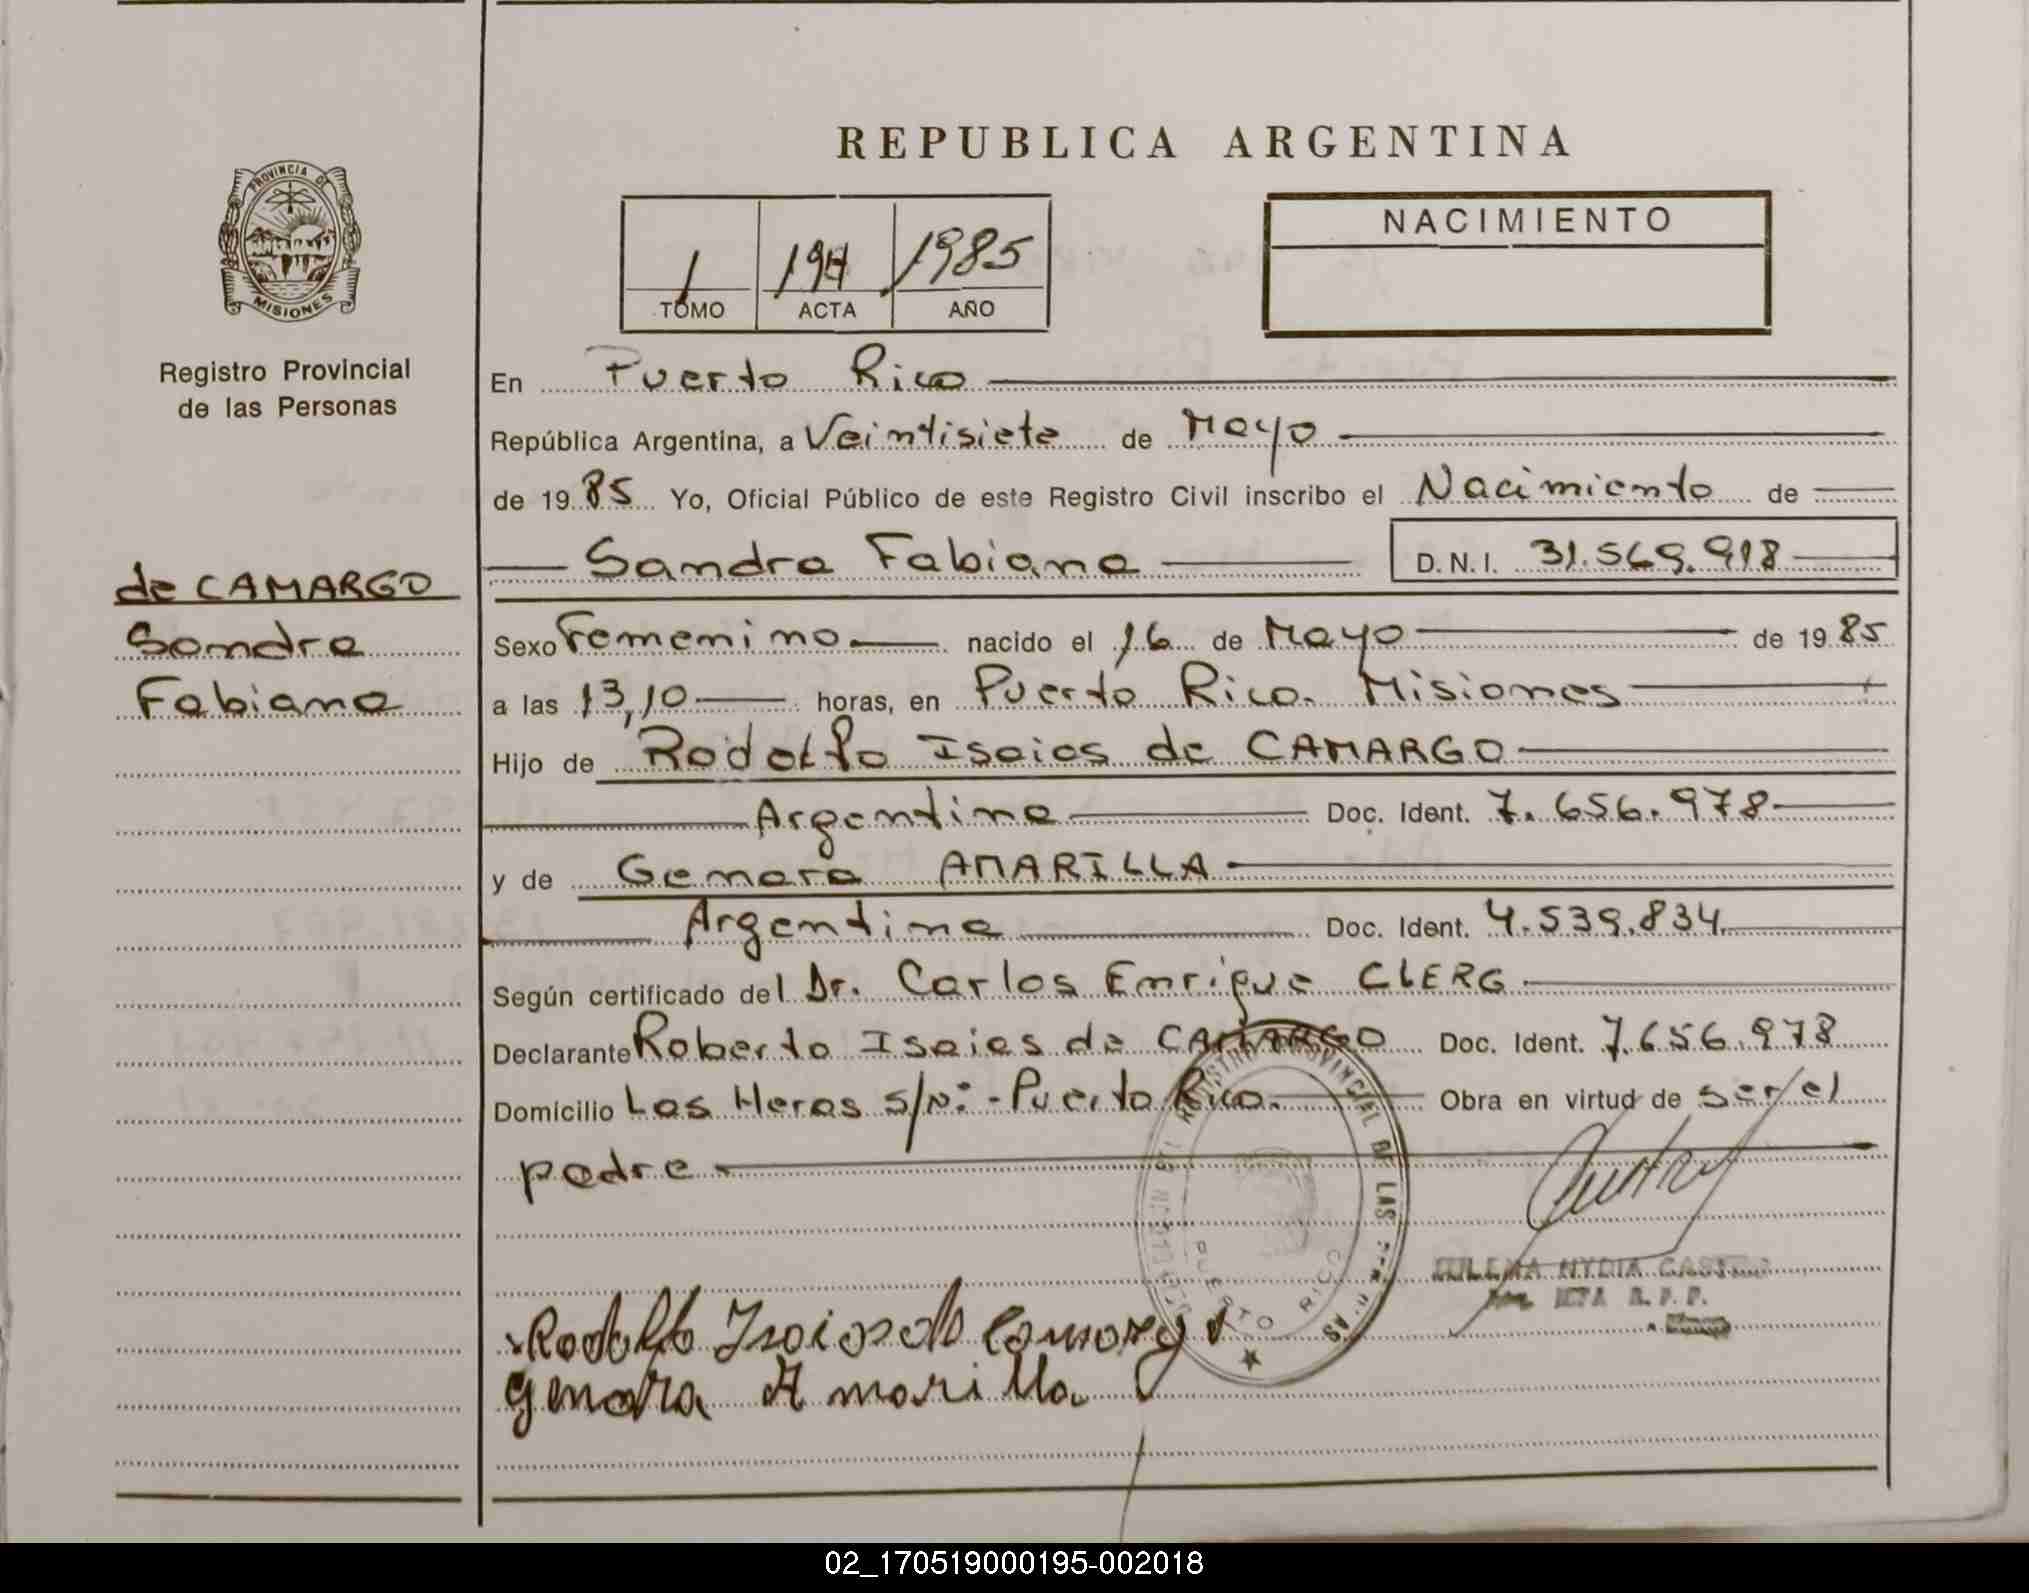 REPUBLICA ARGENTINA
PROVINCIA DE
MISIONES
Registro Provincial
de las Personas
1 1985
TOMO ACTA AÑO
NACIMIENTO
En Puerto Rico
República Argentina, a Veintisiete de Mayo
de 1985 Yo, Oficial Público de este Registro Civil inscribo el Nacimiento de
Sandra Fabiana D.N.I. 31.569.918
de CAMARGO
Sandra
Fabiana
Sexo Femenino nacido el 16 de Mayo de 1985
a las 13,10 horas, en Puerto Rico. Misiones
Hijo de Rodolfo Isaias de CAMARGO
Argentino Doc. Ident. 7.656.978
y de Genara AMARILLA
Argentina Doc. Ident. 4.539.834
Según certificado del Dr. Carlos Enrique CLERG
Declarante Roberto Isaias de CAMARGO Doc. Ident. 7.656.978
Domicilio Las Heras s/n: - Puerto Rico. Obra en virtud de ser el
padre
REGISTRO PROVINCIAL DE LAS
PUERTO RICO
NYDIA CASTRO
R. P. P.
Rodolfo Isaias de Camargo
Genara Amarilla
02_170519000195-002018